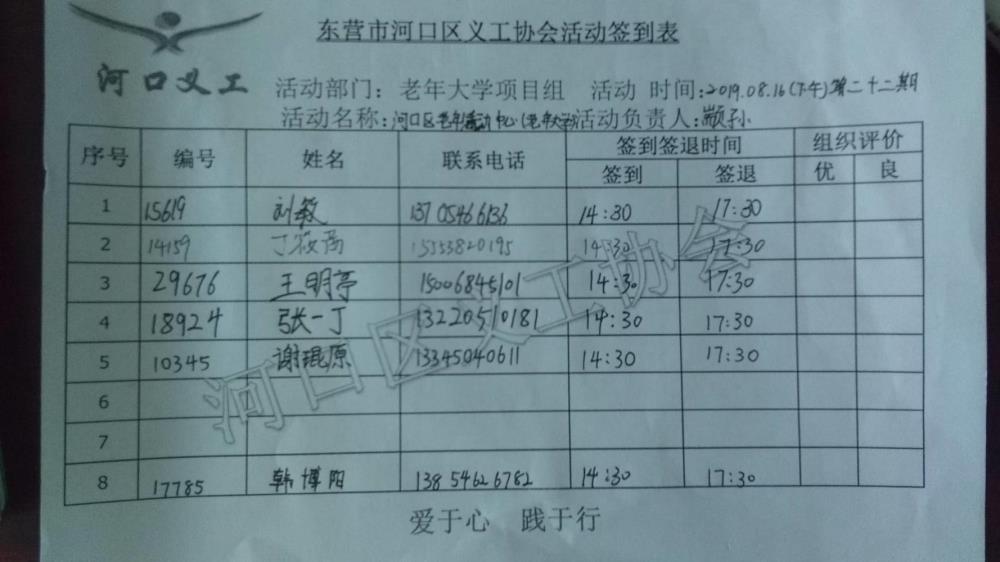 东营市河口区义工协会活动签到表
河口义工
活动部门：老年大学项目组 活动 时间：2019.08.16（下午）第二十二期
活动名称：河口区老年活动中心（老年大学）活动负责人：颛孙
序号 编号 姓名 联系电话 签到签退时间 组织评价
签到 签退 优 良
1 15619 刘敏 13705466136 14:30 17:30
2 14159 丁筱 15353820195 14:30 17:30
3 29676 王明亭 15006845101 14:30 17:30
4 18924 张一丁 13220510181 14:30 17:30
5 10345 谢琨原 13345040611 14:30 17:30
6
7
8 17785 韩博阳 13854626782 14:30 17:30
河口区义工协会
爱于心 践于行